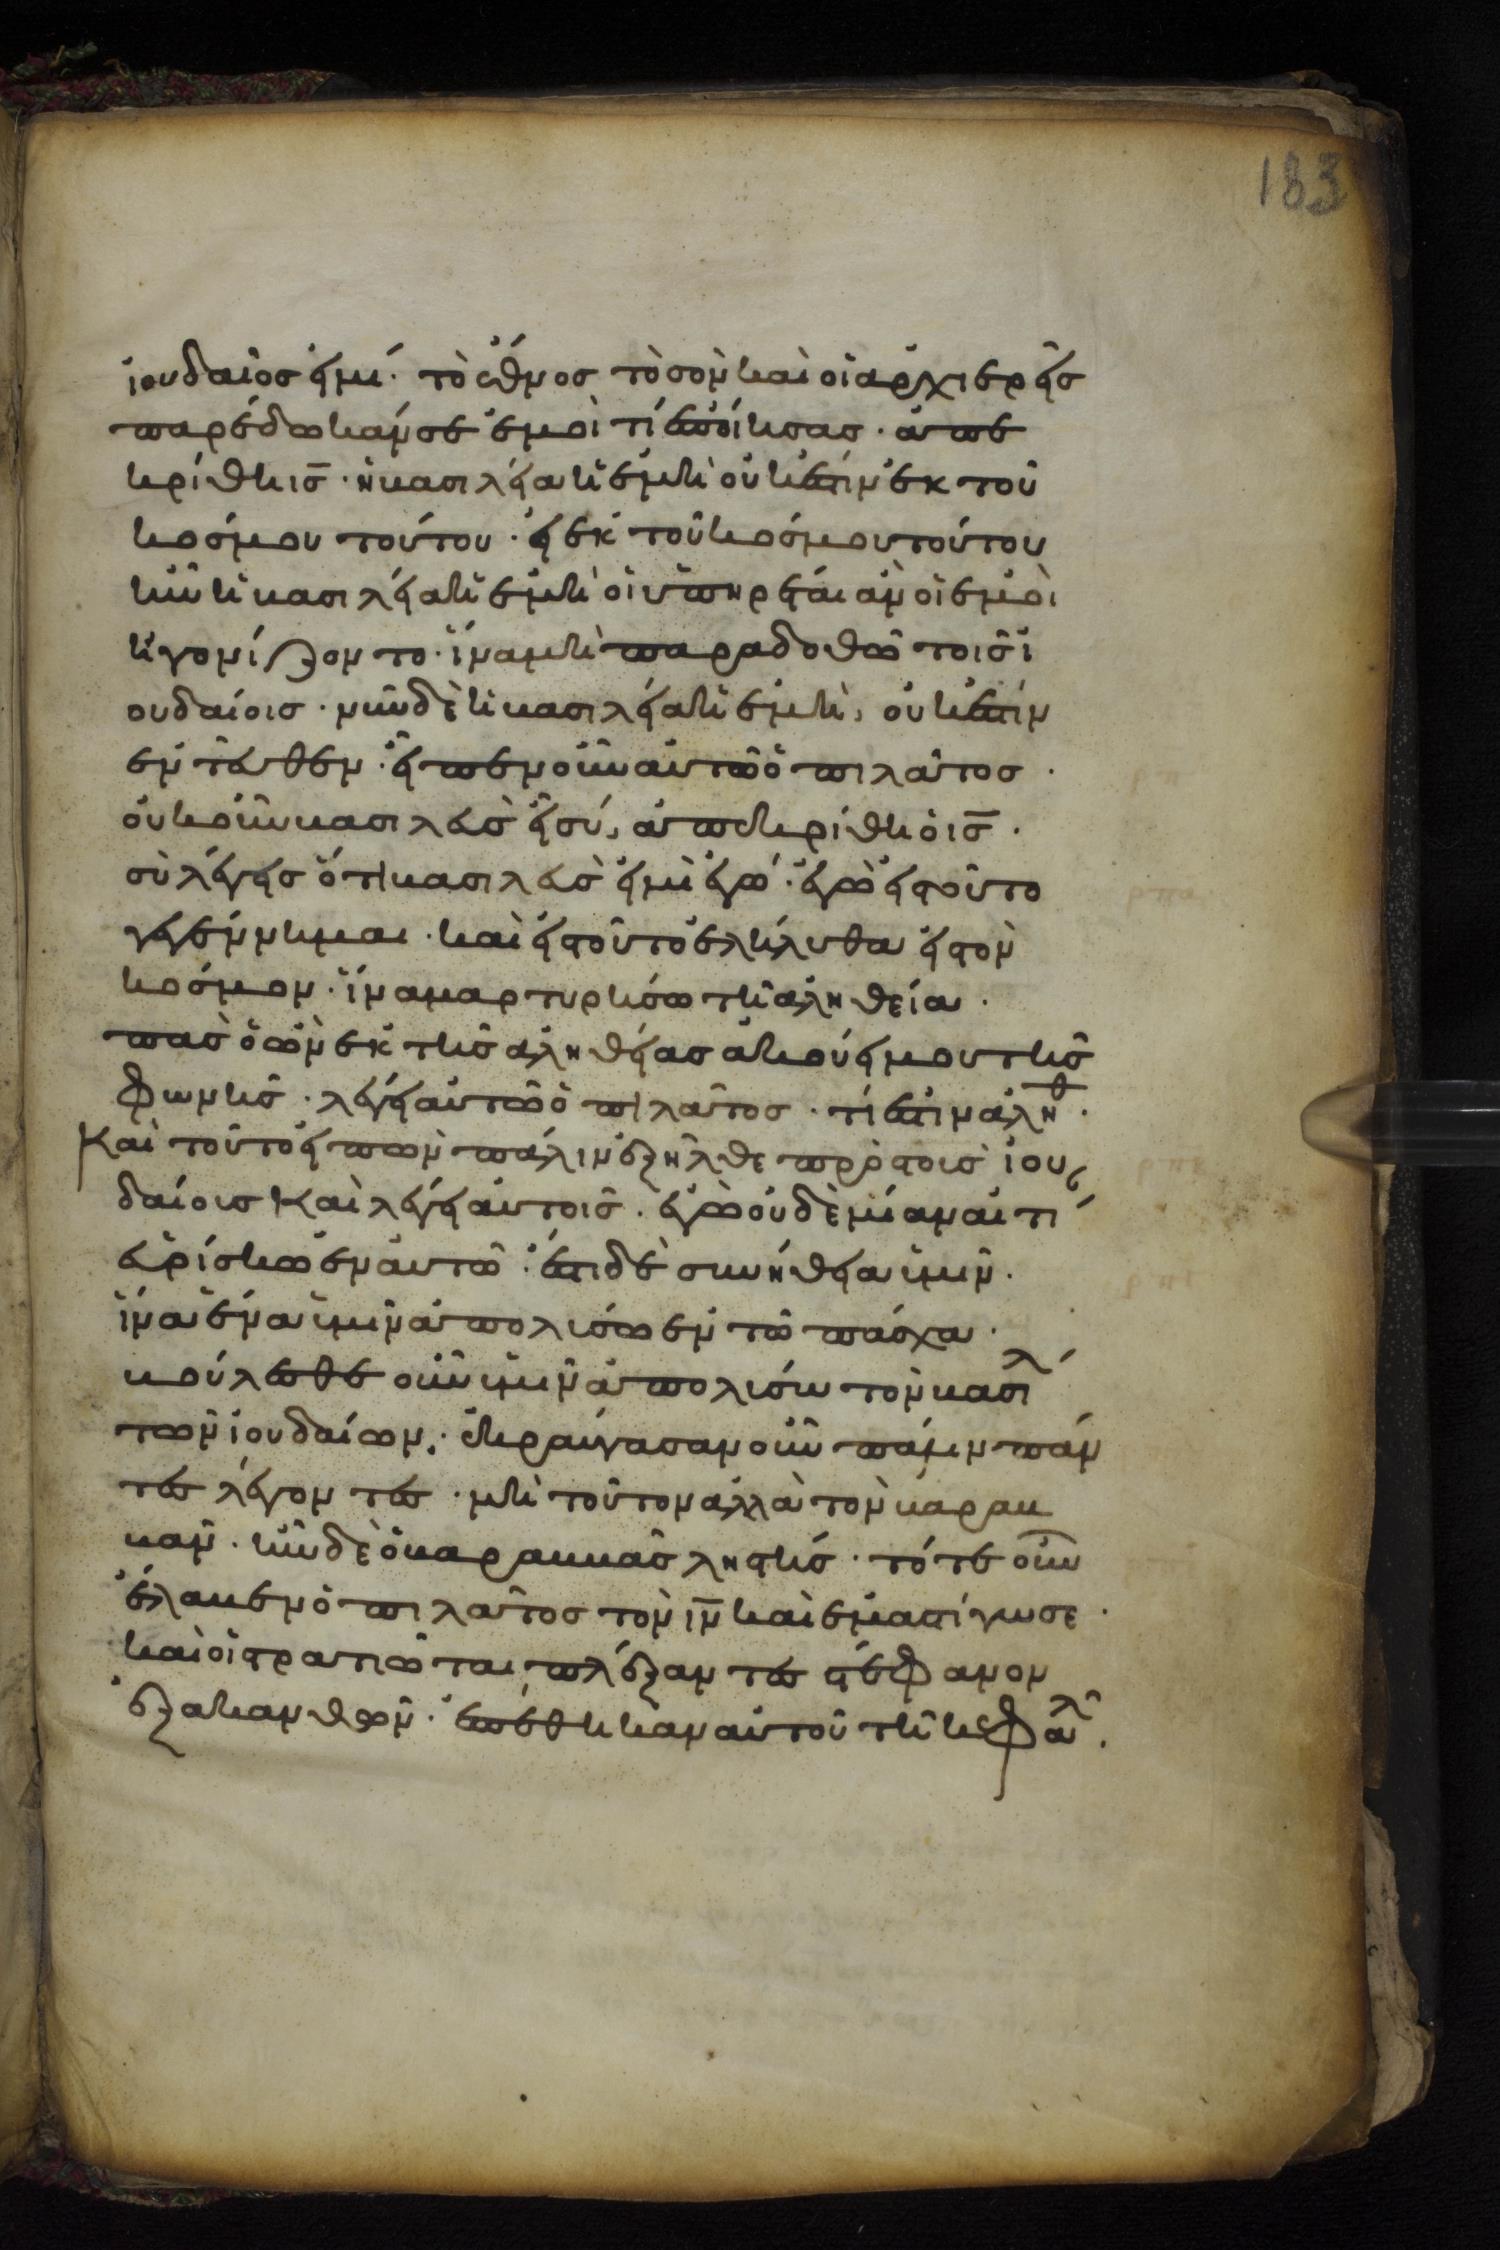 183
ἰουδαῖος εἰμί· τὸ ἔθνος τὸ σὸν καὶ οἱ ἀρχιερεῖς
παρέδωκάν σε ἐμοὶ τί ἐποίησας· ἀπε
κρίθη ις̅· ἡ βασιλεία ἡ ἐμὴ οὐκ ἔστιν ἐκ τοῦ
κόσμου τούτου· εἰ ἐκ τοῦ κόσμου τούτου
ἦν ἡ βασιλεία ἡ ἐμὴ οἱ ὑπηρέται ἂν οἱ ἐμοὶ
ἠγονίζοντο· ἵνα μὴ παραδοθῶ τοῖς ἰ
ουδαίοις· νῦν δὲ ἡ βασιλεία ἡ ἐμὴ, οὐκ ἔστιν
ἐντεῦθεν· εἶπεν οὖν αὐτῶ ὁ πιλᾶτος·
οὐκοῦν βασιλεὺς εἶ σύ, ἀπεκρίθη ὁ ις̅·
σὺ λέγεις ὅτι βασιλεὺς εἰμὶ ἐγώ· ἐγὼ εἰς τοῦτο
γεγέννημαι· καὶ εἰς τοῦτο ἐλήλυθα εἰς τὸν
κόσμον· ἵνα μαρτυρήσω τῆ ἀληθεία·
πὰς ὁ ὢν ἐκ τῆς ἀληθείας ἀκούει μου τῆς
φωνῆς· λέγει αὐτῶ ὁ πιλᾶτος· τί ἐστιν ἀληθ·
Καὶ τοῦτο εἰπὼν πάλιν ἐξῆλθε πρὸς τοὺς ἰου
δαίους Καὶ λέγει αὐτοῖς· ἐγὼ οὐδὲ μίαν αἰτί
εὑρίσκω ἐν αὐτῶ· ἔστι δὲ συνήθεια ὑμῖν·
ἵνα ἕνα ὑμῖν ἀπολύσω ἐν τῶ πάσχα·
βούλεσθε οὖν ὑμῖν ἀπολύσω τὸν βασιλ
τῶν ἰουδαίων· ἐκραύγασαν οὖν πάλιν πάν
τες λέγοντες· μὴ τοῦτον ἀλλὰ τὸν βαραβ
βᾶν· ἦν δὲ ὁ βαραββᾶς ληστής· τότε οὖν
ἔλαβεν ὁ πιλᾶτος τὸν ιν̅ καὶ ἐμαστίγωσε·
καὶ οἱ στρατιῶται, πλέξαντες στέφανον
ἐξ ἀκανθῶν· ἐπέθηκαν αὐτοῦ τῆ κεφαλῆ·